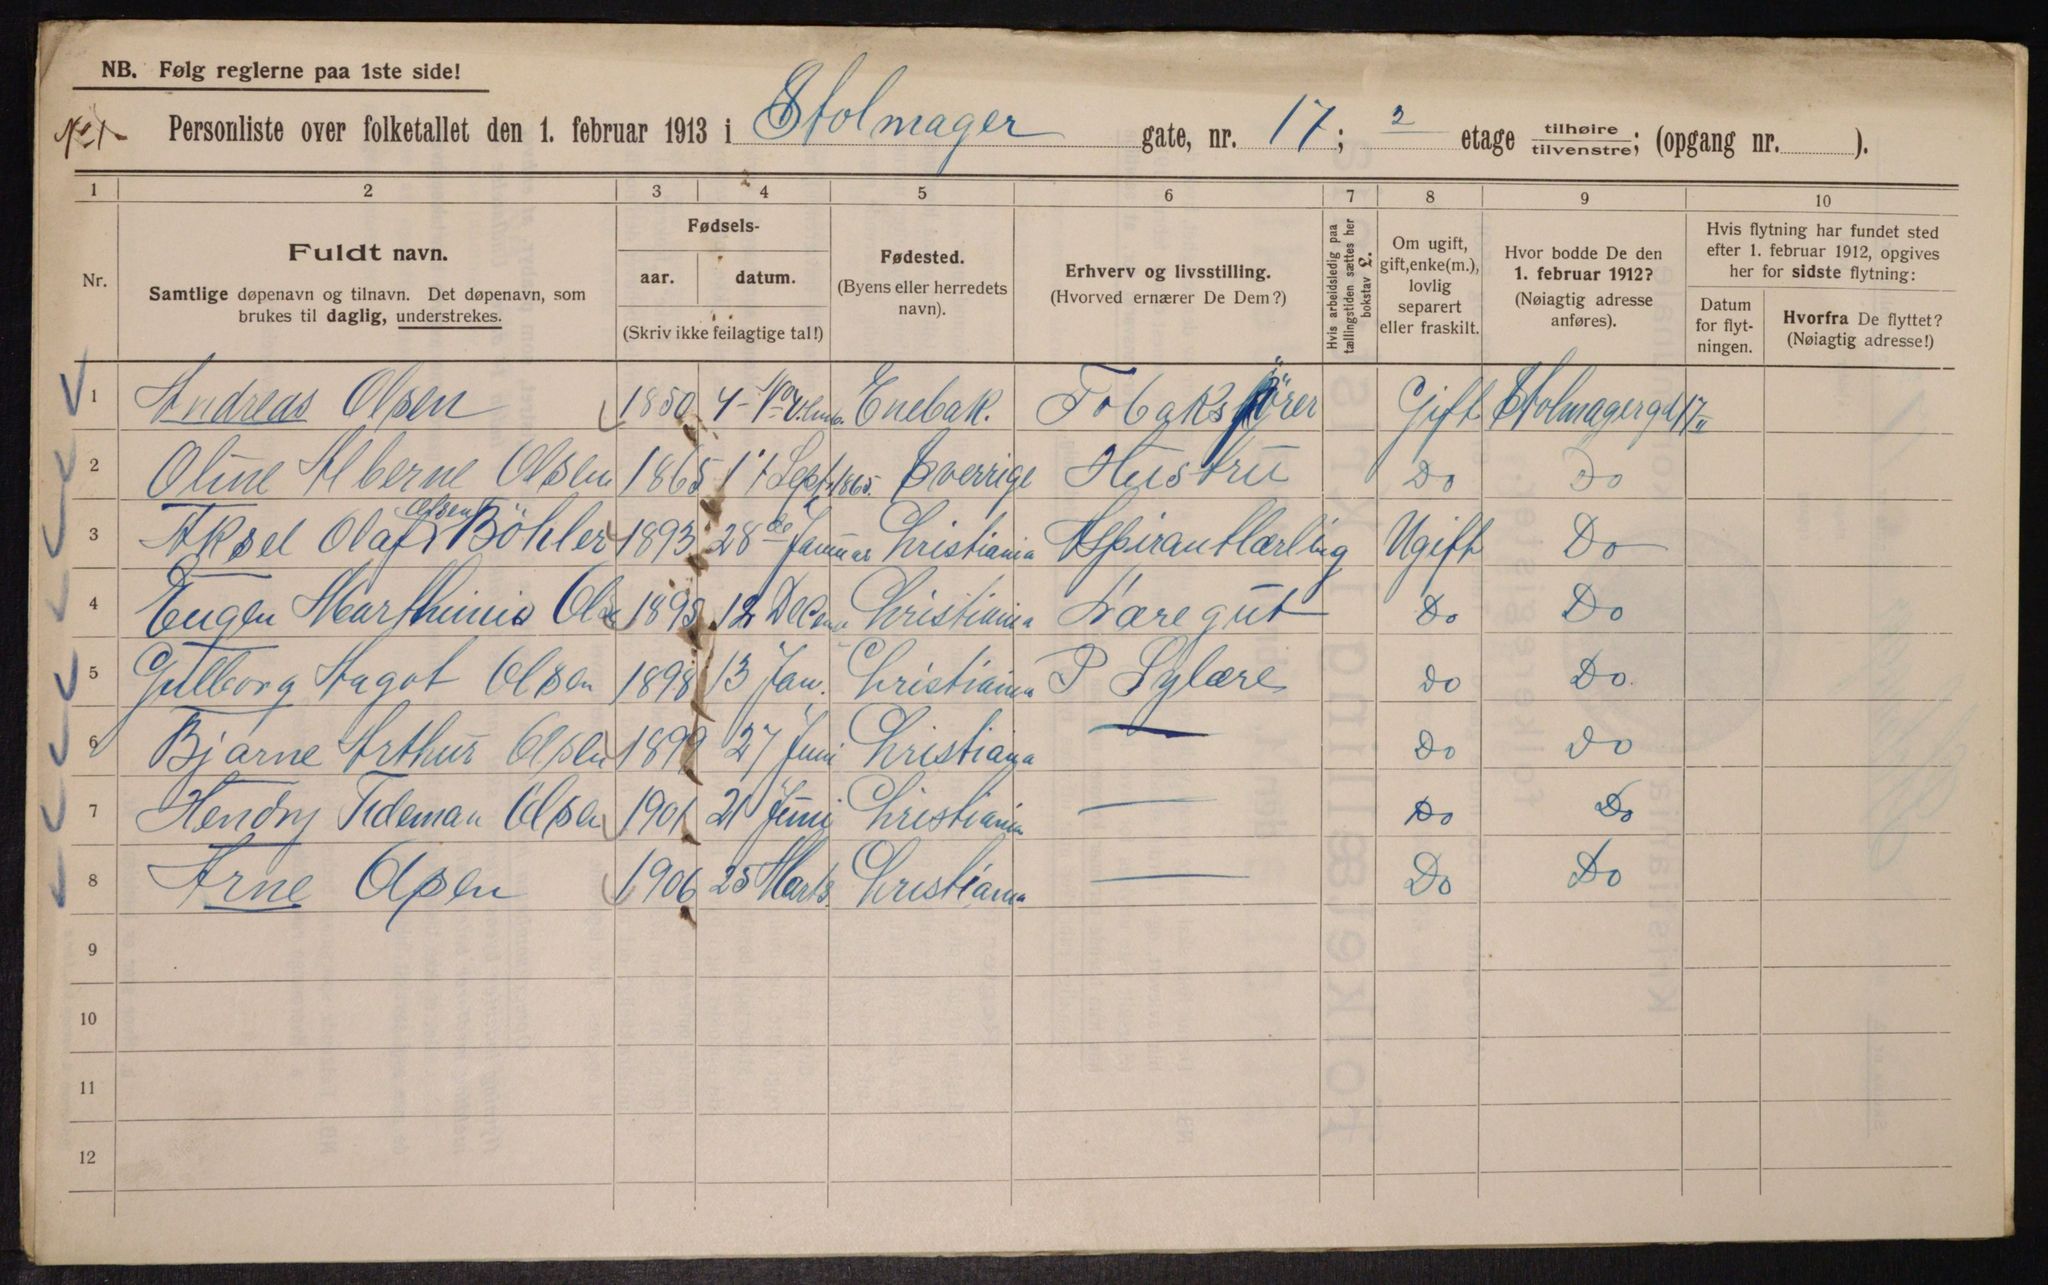 NB. Følg reglerne paa 1ste side!
No 1 Personliste over folketallet den 1. februar 1913 i Stolmager gate, nr. 17; 2 etage tilhøire/tilvenstre; (opgang nr. ).
1 2 3 4 5 6 7 8 9 10
Nr.
Fuldt navn.
Samtlige døpenavn og tilnavn. Det døpenavn, som
brukes til daglig, understrekes.
Fødsels-
aar. datum.
(Skriv ikke feilagtige tal!)
Fødested.
(Byens eller herredets
navn).
Erhverv og livsstilling.
(Hvorved ernærer De Dem?)
Hvis arbeidsledig paa
tællingstiden sættes her
bokstav L.
Om ugift,
gift, enke(m.),
lovlig
separert
eller fraskilt.
Hvor bodde De den
1. februar 1912?
(Nøiagtig adresse
anføres).
Hvis flytning har fundet sted
efter 1. februar 1912, opgives
her for sidste flytning:
Datum
for flyt-
ningen.
Hvorfra De flyttet?
(Nøiagtig adresse!)
1 Andreas Olsen 1850 4 Enebak. Gift Stolmagergd 17 II
2 Oline Olsen 1865 17 Sept 1865. Sverrige Hustru Do Do
3 Aksel Olaf Olsen Böhler 1893 28de Januar Christiania Aspirantlærling Ugift Do
4 Eugen Marthinius Olsen 1895 12 Decem Christiania Læregut Do Do
5 Gulborg Hagot Olsen 1898 13 Jan. Christiania P Sylære Do Do
6 Bjarne Arthur Olsen 1899 27 Juni Christiania — Do Do
7 Hendry Tideman Olsen 1901 21 Juni Christiania — Do Do
8 Arne Olsen 1906 25 Marts Christiania — Do Do
9
10
11
12